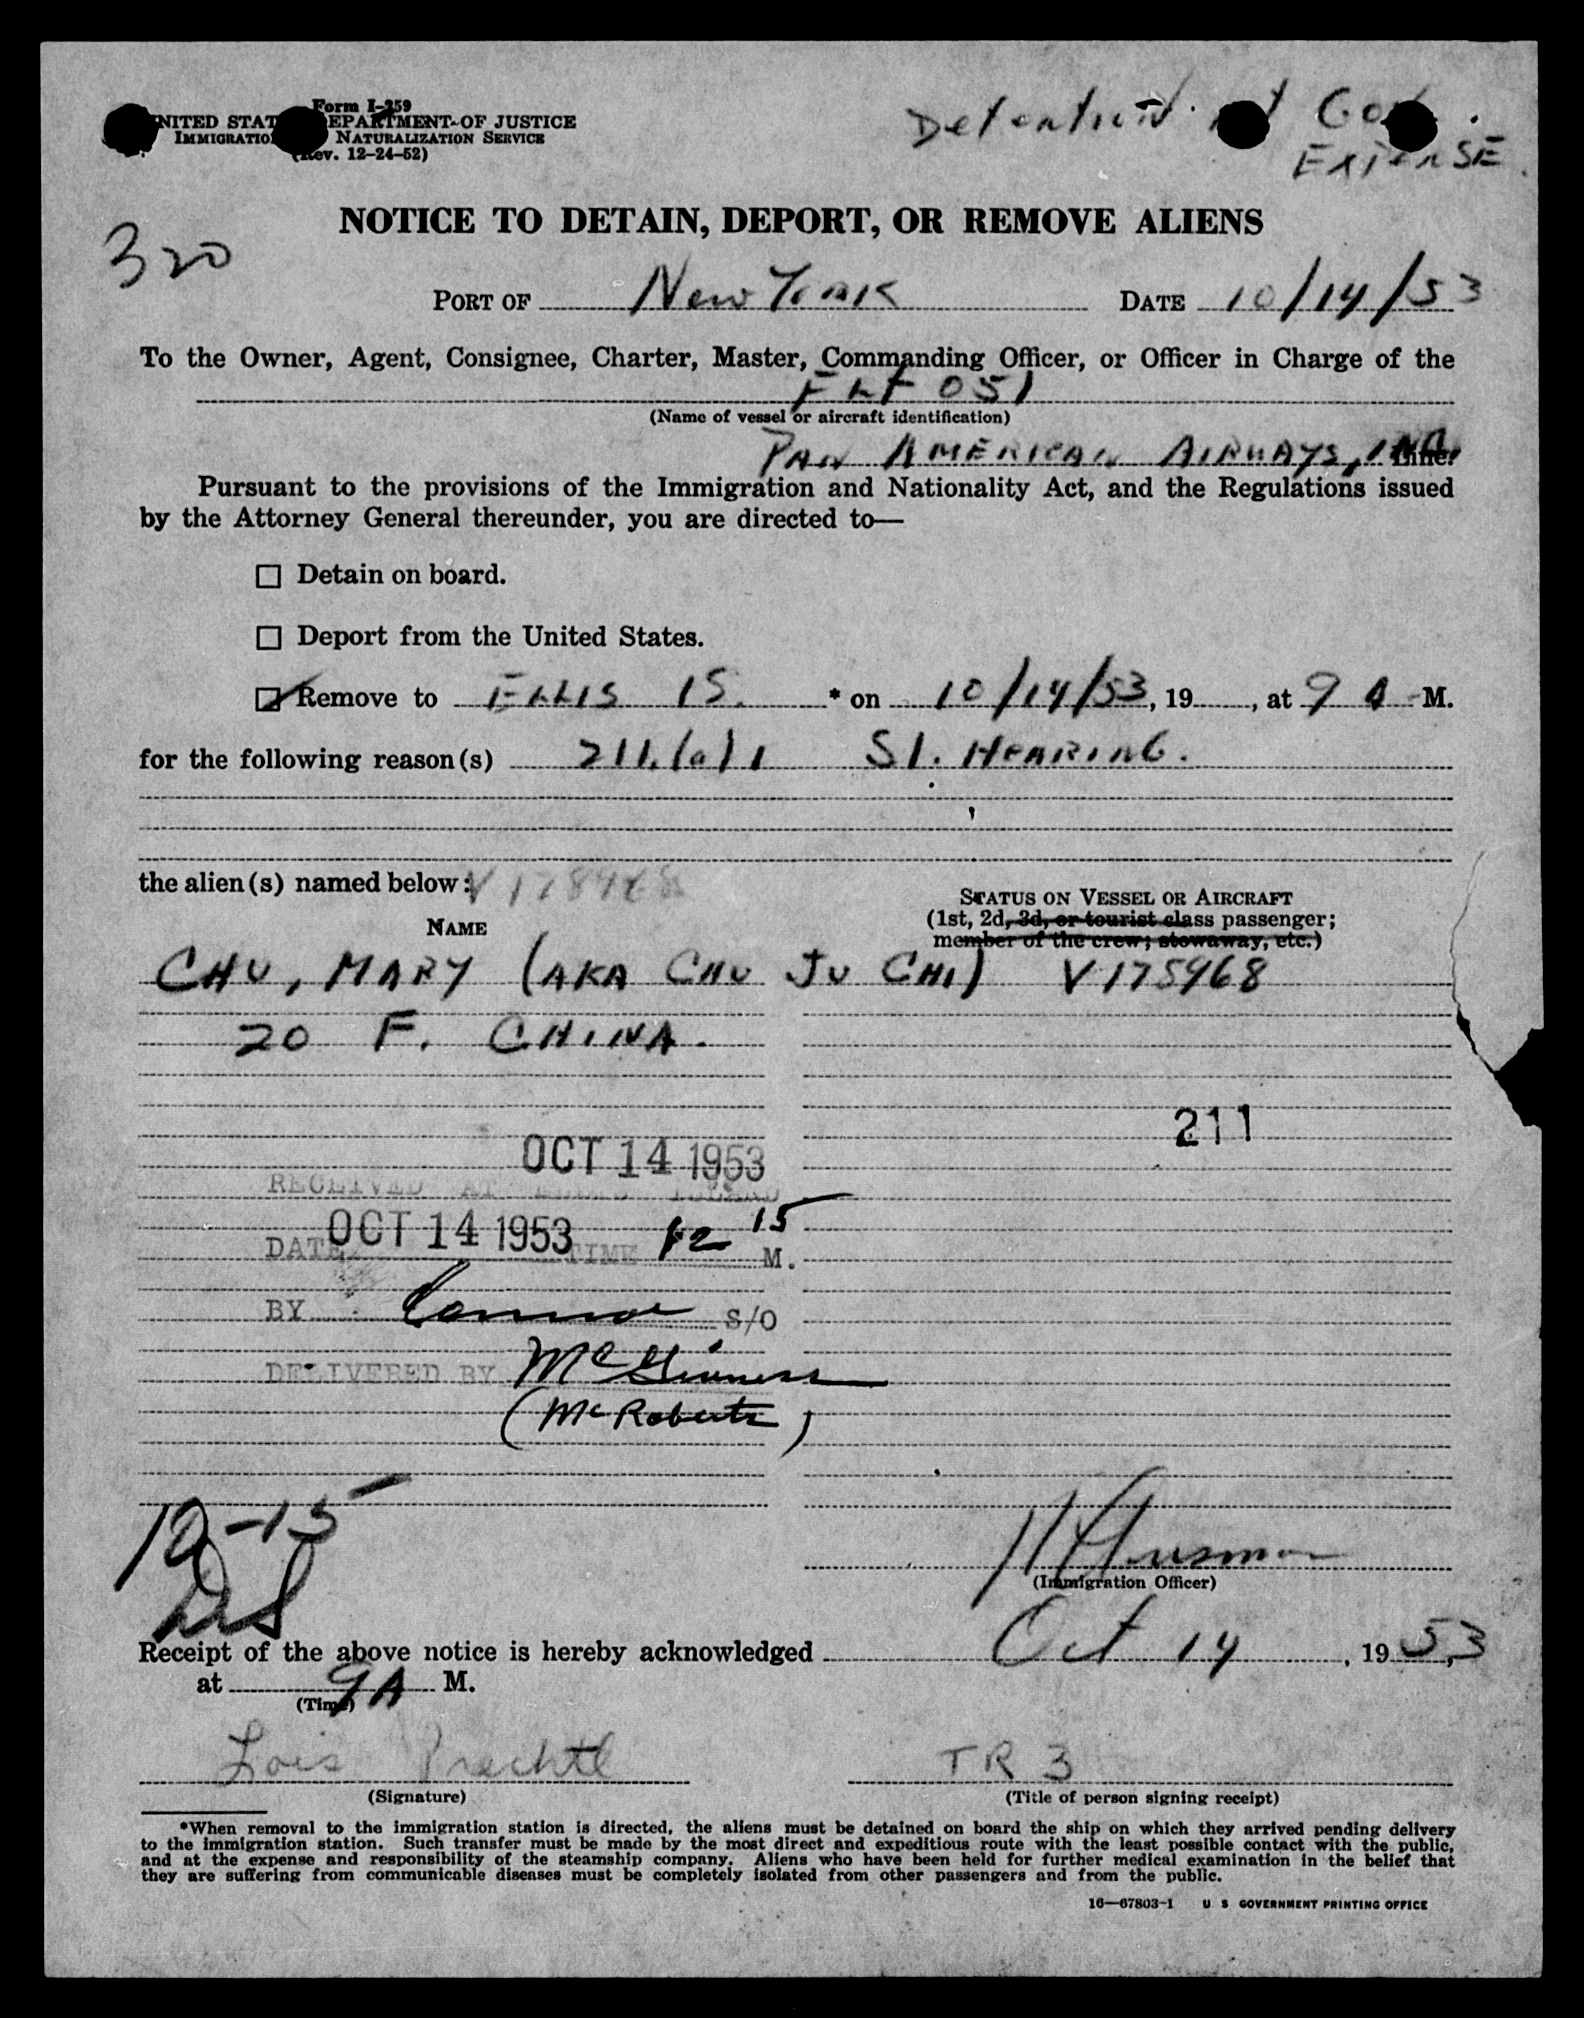 Form I-259
UNITED STATES DEPARTMENT OF JUSTICE
IMMIGRATION NATURALIZATION SERVICE
(Rev. 12-24-52)
Detention at Gov.
EXPENSE
320
NOTICE TO DETAIN, DEPORT, OR REMOVE ALIENS
PORT OF New York DATE 10/14/53
To the Owner, Agent, Consignee, Charter, Master, Commanding Officer, or Officer in Charge of the
FLT 051
(Name of vessel or aircraft identification)
PAN AMERICAN AIRWAYS, INC. Line.
Pursuant to the provisions of the Immigration and Nationality Act, and the Regulations issued
by the Attorney General thereunder, you are directed to—
☐ Detain on board.
☐ Deport from the United States.
☑ Remove to ELLIS IS. * on 10/14/53, 19 , at 9 A M.
for the following reason(s) 211.(a)1 SI. HEARING.
the alien(s) named below: V178468
STATUS ON VESSEL OR AIRCRAFT
(1st, 2d, 3d, or tourist class passenger;
member of the crew; stowaway, etc.)
NAME
CHU, MARY (AKA CHU JU CHI) V175968
20 F. CHINA.
211
OCT 14 1953
RECEIVED AT ELLIS ISLAND
DATE OCT 14 1953 TIME 12 15 M.
BY Connor S/O
DELIVERED BY McGinness
(McRoberts)
12-15
(Immigration Officer)
Receipt of the above notice is hereby acknowledged Oct 14, 1953,
at 9A M.
(Time)
Lois Prechtl TR 3
(Signature) (Title of person signing receipt)
*When removal to the immigration station is directed, the aliens must be detained on board the ship on which they arrived pending delivery
to the immigration station. Such transfer must be made by the most direct and expeditious route with the least possible contact with the public,
and at the expense and responsibility of the steamship company. Aliens who have been held for further medical examination in the belief that
they are suffering from communicable diseases must be completely isolated from other passengers and from the public.
16—67803-1 U S GOVERNMENT PRINTING OFFICE